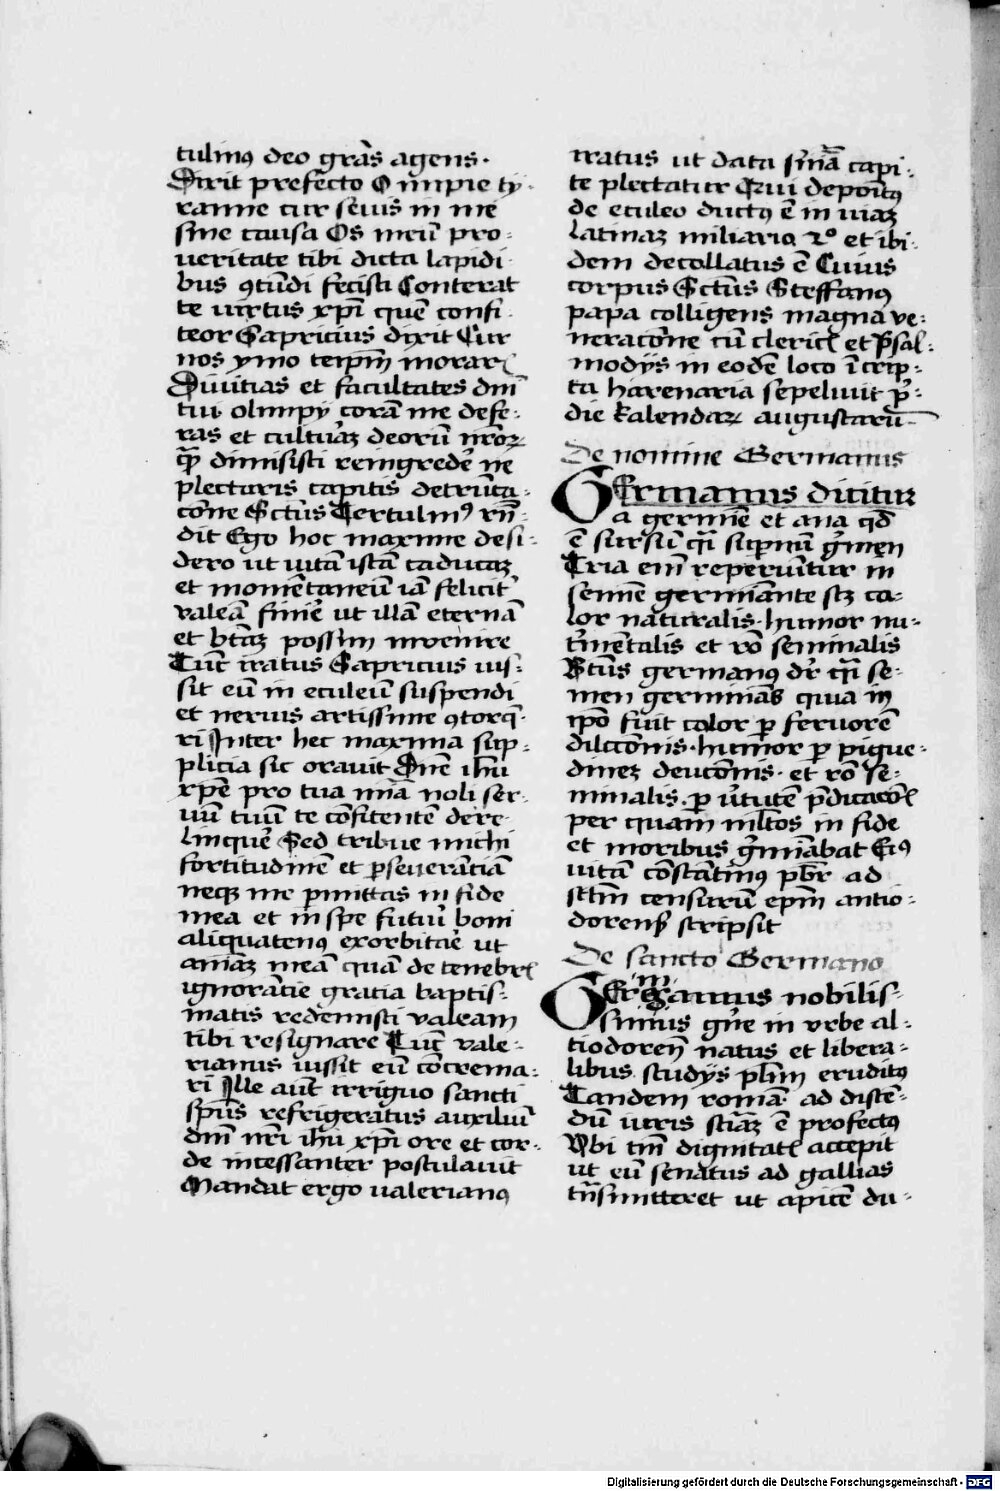 tulinꝰ deo grãs agens·
Dixit prefecto O impie ty-
ranne cur seuis in me
sine causa Os meũ pro-
ueritate tibi dicta lapidi-
bus ꝯtũdi fecisti Conterat
te uirtus xp̃i quẽ confi-
teor Sapricius dixit Cur
nos ymo teip̃m morarꝭ
Diuitias et facultates dñi
tui olimpij corã me defe-
ras et culturã deorũ nr̃oꝝ
quã dimisisti reingredẽ ne
plectaris capitis detrũca-
cõne Sctũs Tertulinꝰ rñ-
dit Ego hoc maxime desi-
dero ut uitã istã caducaꝫ
et momẽtaneũ iã felicit̾
valeã finiẽ ut illã eternã
et btãꝫ possim inuenire
Tũc iratus Sapricius ius-
sit eũ in eculeũ suspendi
et neruis artissime ꝯtorq̃-
ri Inter hec maxima sup-
plicia sic orauit Dñe ihũ
xp̃e pro tua mĩa noli ser-
uũ tuũ te cõfitentẽ dere-
linquẽ Sed tribue michi
fortitudinẽ et ꝑseuerãciã
neqꝫ me ꝑmittas in fide
mea et in spe futuri boni
aliquatenꝰ exorbitaẽ ut
aĩaꝫ meã quã de tenebrꝭ
ignorãcie gracia baptis-
matis redemisti valeam
tibi resignare Tũc vale-
rianus iussit eũ cõcrema-
ri Ille aut̃ irriguo sancti
sp̃us refrigeratus auxiliũ
dñi nr̃i ihũ xp̃i ore et cor-
de incessanter postulauit
Mandat ergo ualerianꝰ
iratus ut data sñĩa capi-
te plectatur Qui depoitꝰ
de eculeo ductꝰ ẽ in uiaꝫ
latinaꝫ miliario 2º et ibi-
dem decollatus ẽ Cuius
corpus Sctũs Steffanꝰ
papa colligens magna ve-
neracõne cũ clericꝭ et psal-
modijs in eodẽ loco ĩ crip-
ta harenaria sepeliuit pr̾-
die kalendaꝝ augustarũ
De nomine Germanus
Germanus dicitur
a germĩe et ana qd̃
ẽ sursũ q̃i supnũ g̾men
Tria em̃ reperiũtur in
semĩe germiãnte scꝫ ca-
lor naturalis·humor nu-
t̾mẽtalis et rõ seminalis
Btũs germanꝰ dr̃ q̃i se-
men germinãs quia in
ipõ fuit calor ꝑ feruorẽ
dilcciõnis·humor ꝑ pigue-
dineꝫ deuciõnis· et rõ se-
minalis·ꝑ u̾tutẽ p̃dicacõꝭ
per quam mltos in fide
et moribus g̾mĩabat Eiꝰ
uitã cõstãtinꝰ pbr̃ ad
sctm̃ censuriũ ep̃m antio-
dorenꝭ scripsit
De sancto Germano
Germanus nobilis-
simus gñe in vrbe al-
tiodoreñ natus et libera-
libus studijs plrĩm eruditꝰ
Tandem romã ad discẽ-
dũ iuris sciãꝫ ẽ profectꝰ
Vbi tm̃ dignitatꝭ accepit
ut eũ senatus ad gallias
tñsmitteret ut apicẽ du-
Digitalisierung gefördert durch die Deutsche Forschungsgemeinschaft - DFG